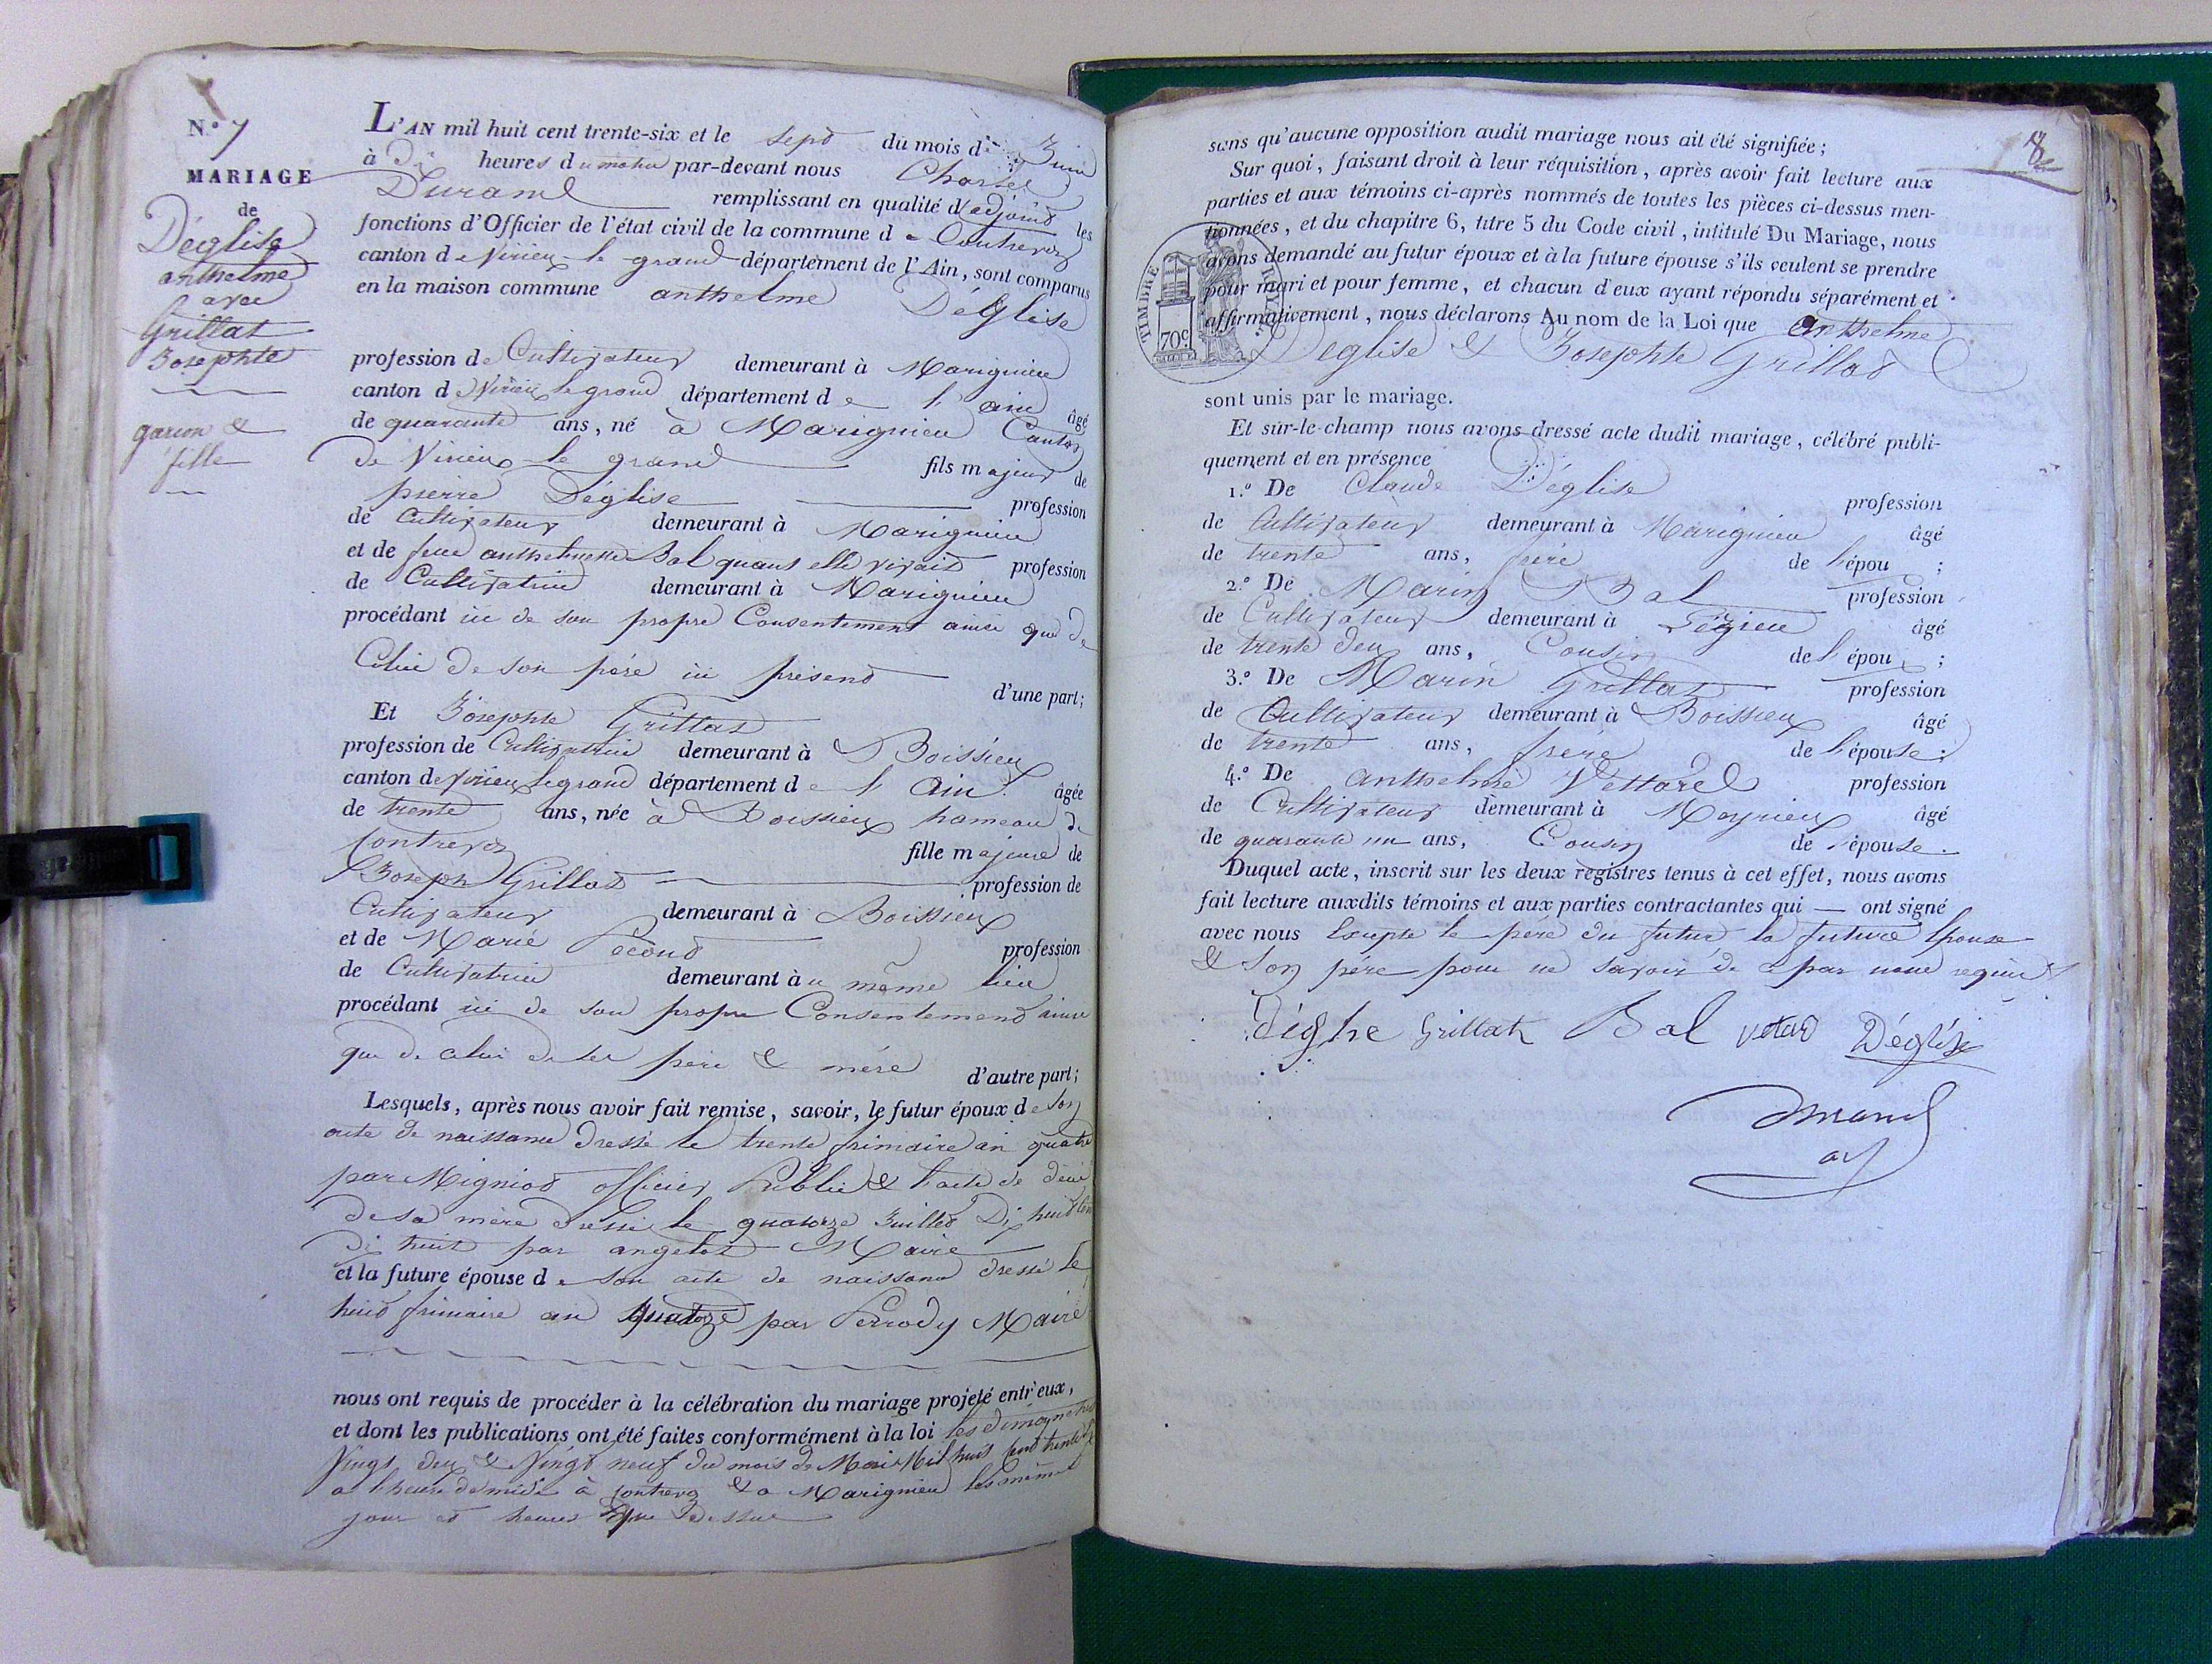 N.° 7
MARIAGE
de
Déglise
anthelme
avec
Grillat
Josephte
garcon &
fille
L'AN mil huit cent trente-six et le sept du mois de Juin
à dix heures du matin par-devant nous Charles
Durand remplissant en qualité d'adjoint les
fonctions d'Officier de l'état civil de la commune de Contrevoz
canton de Virieu le grand département de l'Ain, sont comparus
en la maison commune anthelme Déglise
profession de Cultivateur demeurant à Marignieu
canton de Virieu le grand département de l'ain âgé
de quarante ans, né à Marignieu Canton
de Virieu le grand fils majeur de
pierre Déglise profession
de Cultivateur demeurant à Marignieu
et de feue anthelmette Bal quant elle vivait profession
de Cultivatrice demeurant à Marignieu
procédant ici de son propre Consentement ainsi que de
Celui de son père ici présent d'une part;
Et Josephte Grillat
profession de Cultivatrice demeurant à Boissieu
canton de Virieu le grand département de l'Ain âgée
de trente ans, née à Boissieu hameau de
Contrevoz fille majeure de
Joseph Grillat profession de
Cultivateur demeurant à Boissieu
et de Marie Pécout profession
de Cultivatrice demeurant au même lieu
procédant ici de son propre Consentement ainsi
que de celui de ses père & mére d'autre part;
Lesquels, après nous avoir fait remise, savoir, le futur époux de son
acte de naissance dressé le trente frimaire an quatre
par Migniot officier Public & l'acte de décè
de sa mère dressé le quatorze Juillet Dix huit cent
dix huit par angelot Maire
et la future épouse de son acte de naissance dressé le
huit frimaire an quatorze par Perrody Maire
nous ont requis de procéder à la célébration du mariage projeté entr'eux,
et dont les publications ont été faites conformément à la loi les dimanches
Vingt deux & Vingt neuf du mois de Mai Mil huit cent trente six
a l'heure de midi à Contrevoz & a Marignieu les mêmes
jour et heures que dessus
8
sans qu'aucune opposition audit mariage nous ait été signifiée;
Sur quoi, faisant droit à leur réquisition, après avoir fait lecture aux
parties et aux témoins ci-après nommés de toutes les pièces ci-dessus men-
tionnées, et du chapitre 6, titre 5 du Code civil, intitulé Du Mariage, nous
avons demandé au futur époux et à la future épouse s'ils veulent se prendre
pour mari et pour femme, et chacun d'eux ayant répondu séparément et
affirmativement, nous déclarons Au nom de la Loi que Anthelme
Déglise & Josephte Grillat
TIMBRE ROYAL
70c
sont unis par le mariage.
Et sur-le-champ nous avons dressé acte dudit mariage, célébré publi-
quement et en présence
1.° De Claude Déglise profession
de Cultivateur demeurant à Marignieu âgé
de trente ans, frère de l'épou ;
2.° De Marin Bal profession
de Cultivateur demeurant à Pézieu âgé
de trente deux ans, Cousin de l'époux ;
3.° De Marin Grillat profession
de Cultivateur demeurant à Boissieu âgé
de trente ans, frère de l'épouse ;
4.° De anthelme Vettard profession
de Cultivateur demeurant à Meyrieu âgé
de quarante un ans, Cousin de l'épouse.
Duquel acte, inscrit sur les deux registres tenus à cet effet, nous avons
fait lecture auxdits témoins et aux parties contractantes qui — ont signé
avec nous Excepté le père du futur la future Epouse
& son père pour ne savoir de ce par nous requis
Déglise Grillat Bal vetard Déglise
Durand
adj